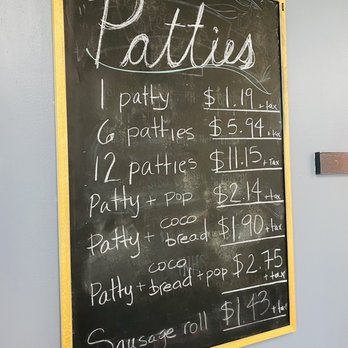 Patties
1 patty $1.19 + tax
6 patties $5.94 + tax
12 patties $11.15 + tax
Patty + pop $2.14 + tax
Patty + coco bread $1.90 + tax
Patty + coco bread + pop $2.75 + tax
Sausage roll $1.43 + tax